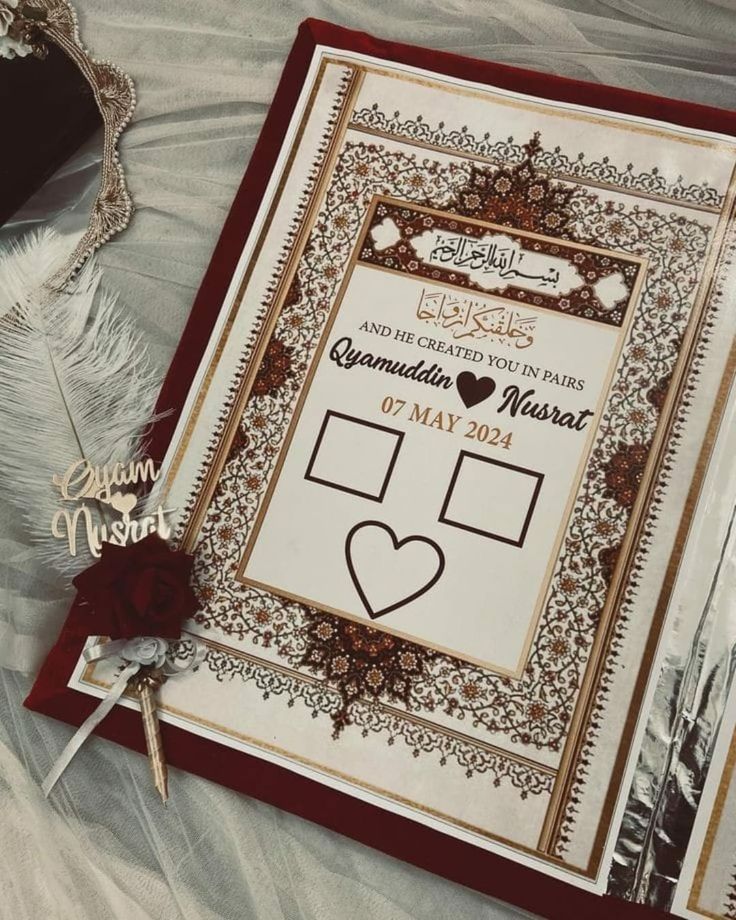 بسم الله الرحمن الرحيم
وخلقنكم ازواجا
AND HE CREATED YOU IN PAIRS
Qyamuddin Nusrat
07 MAY 2024
Qyam
Nusrat